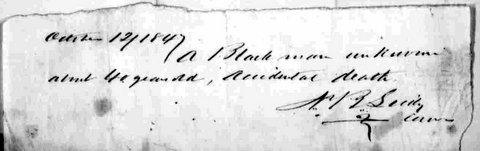 October 12/1847
A Black man unknown
about 40 years old, Accidental death.
N B Leidy
Coroner